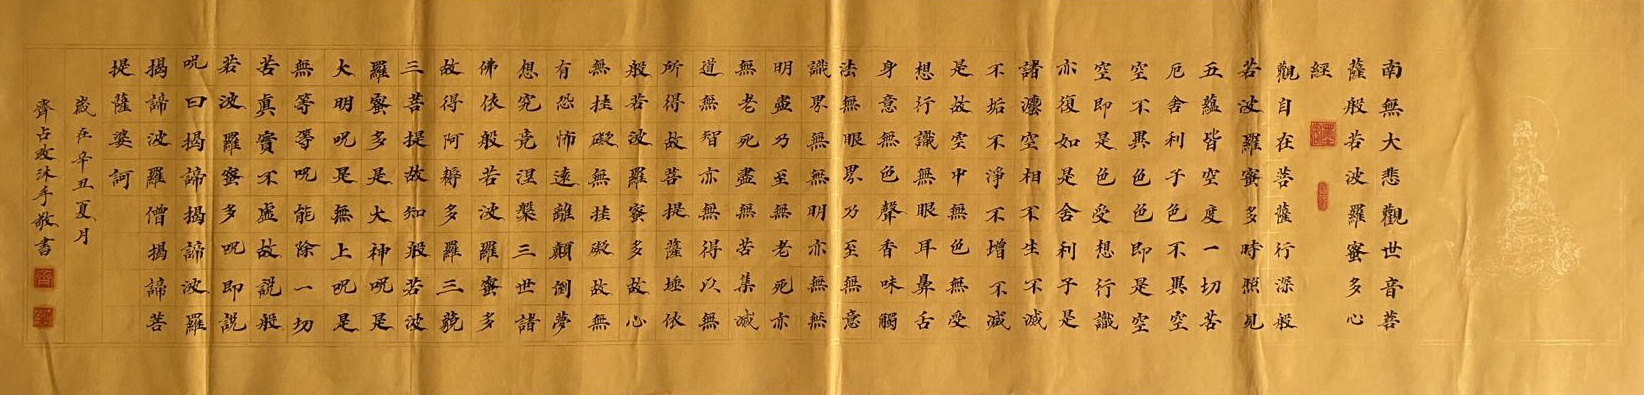 南無大悲觀世音菩
薩般若波羅蜜多心
經
觀自在菩薩行深般
若波羅蜜多時照見
五蘊皆空度一切苦
厄舍利子色不異空
空不異色色即是空
空即是色受想行識
亦復如是舍利子是
諸灋空相不生不滅
不垢不淨不增不減
是故空中無色無受
想行識無眼耳鼻舌
身意無色聲香味觸
法無眼界乃至無意
識界無無明亦無無
明盡乃至無老死亦
無老死盡無苦集滅
道無智亦無得以無
所得故菩提薩埵依
般若波羅蜜多故心
無挂礙無挂礙故無
有恐怖遠離顛倒夢
想究竟涅槃三世諸
佛依般若波羅蜜多
故得阿耨多羅三藐
三菩提故知般若波
羅蜜多是大神呪是
大明呪是無上呪是
無等等呪能除一切
苦真實不虛故說般
若波羅蜜多呪即說
呪曰揭諦揭諦波羅
揭諦波羅僧揭諦菩
提薩婆訶
歲在辛丑夏月
齊占改沐手敬書